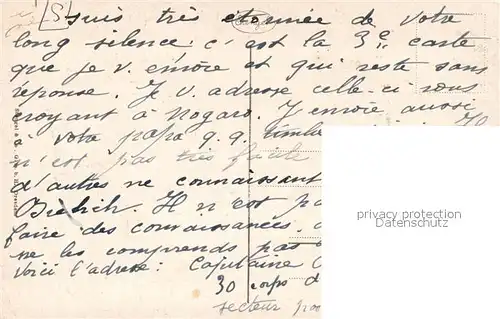 Suis très étonnée de votre
long silence; c'est la 3e carte
que je v. envoie et qui reste sans
réponse. Je v. adresse celle-ci vous
croyant à Nogaro. J'envoie aussi
à votre papa q.q. timb
n'est pas très facile
d'autres ne connaissant
Il n'est pa
faire des connaissances,
ne les comprends pas
Voici l'adresse: Capitaine
30 corps d
secteur
privacy protection
Datenschutz